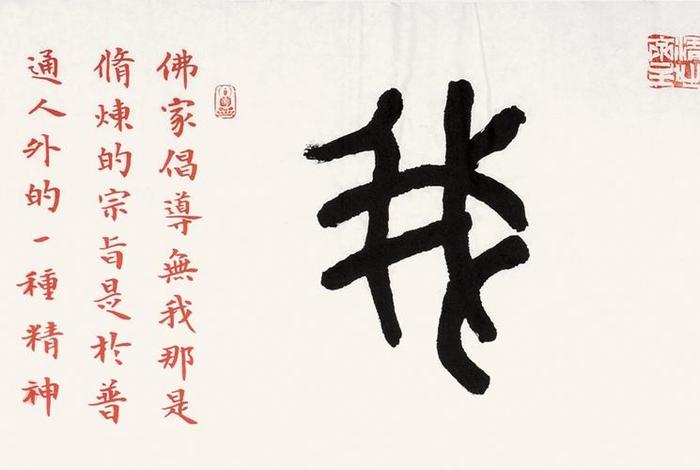 我
佛家倡導無我那是
脩煉的宗旨是於普
通人外的一種精神